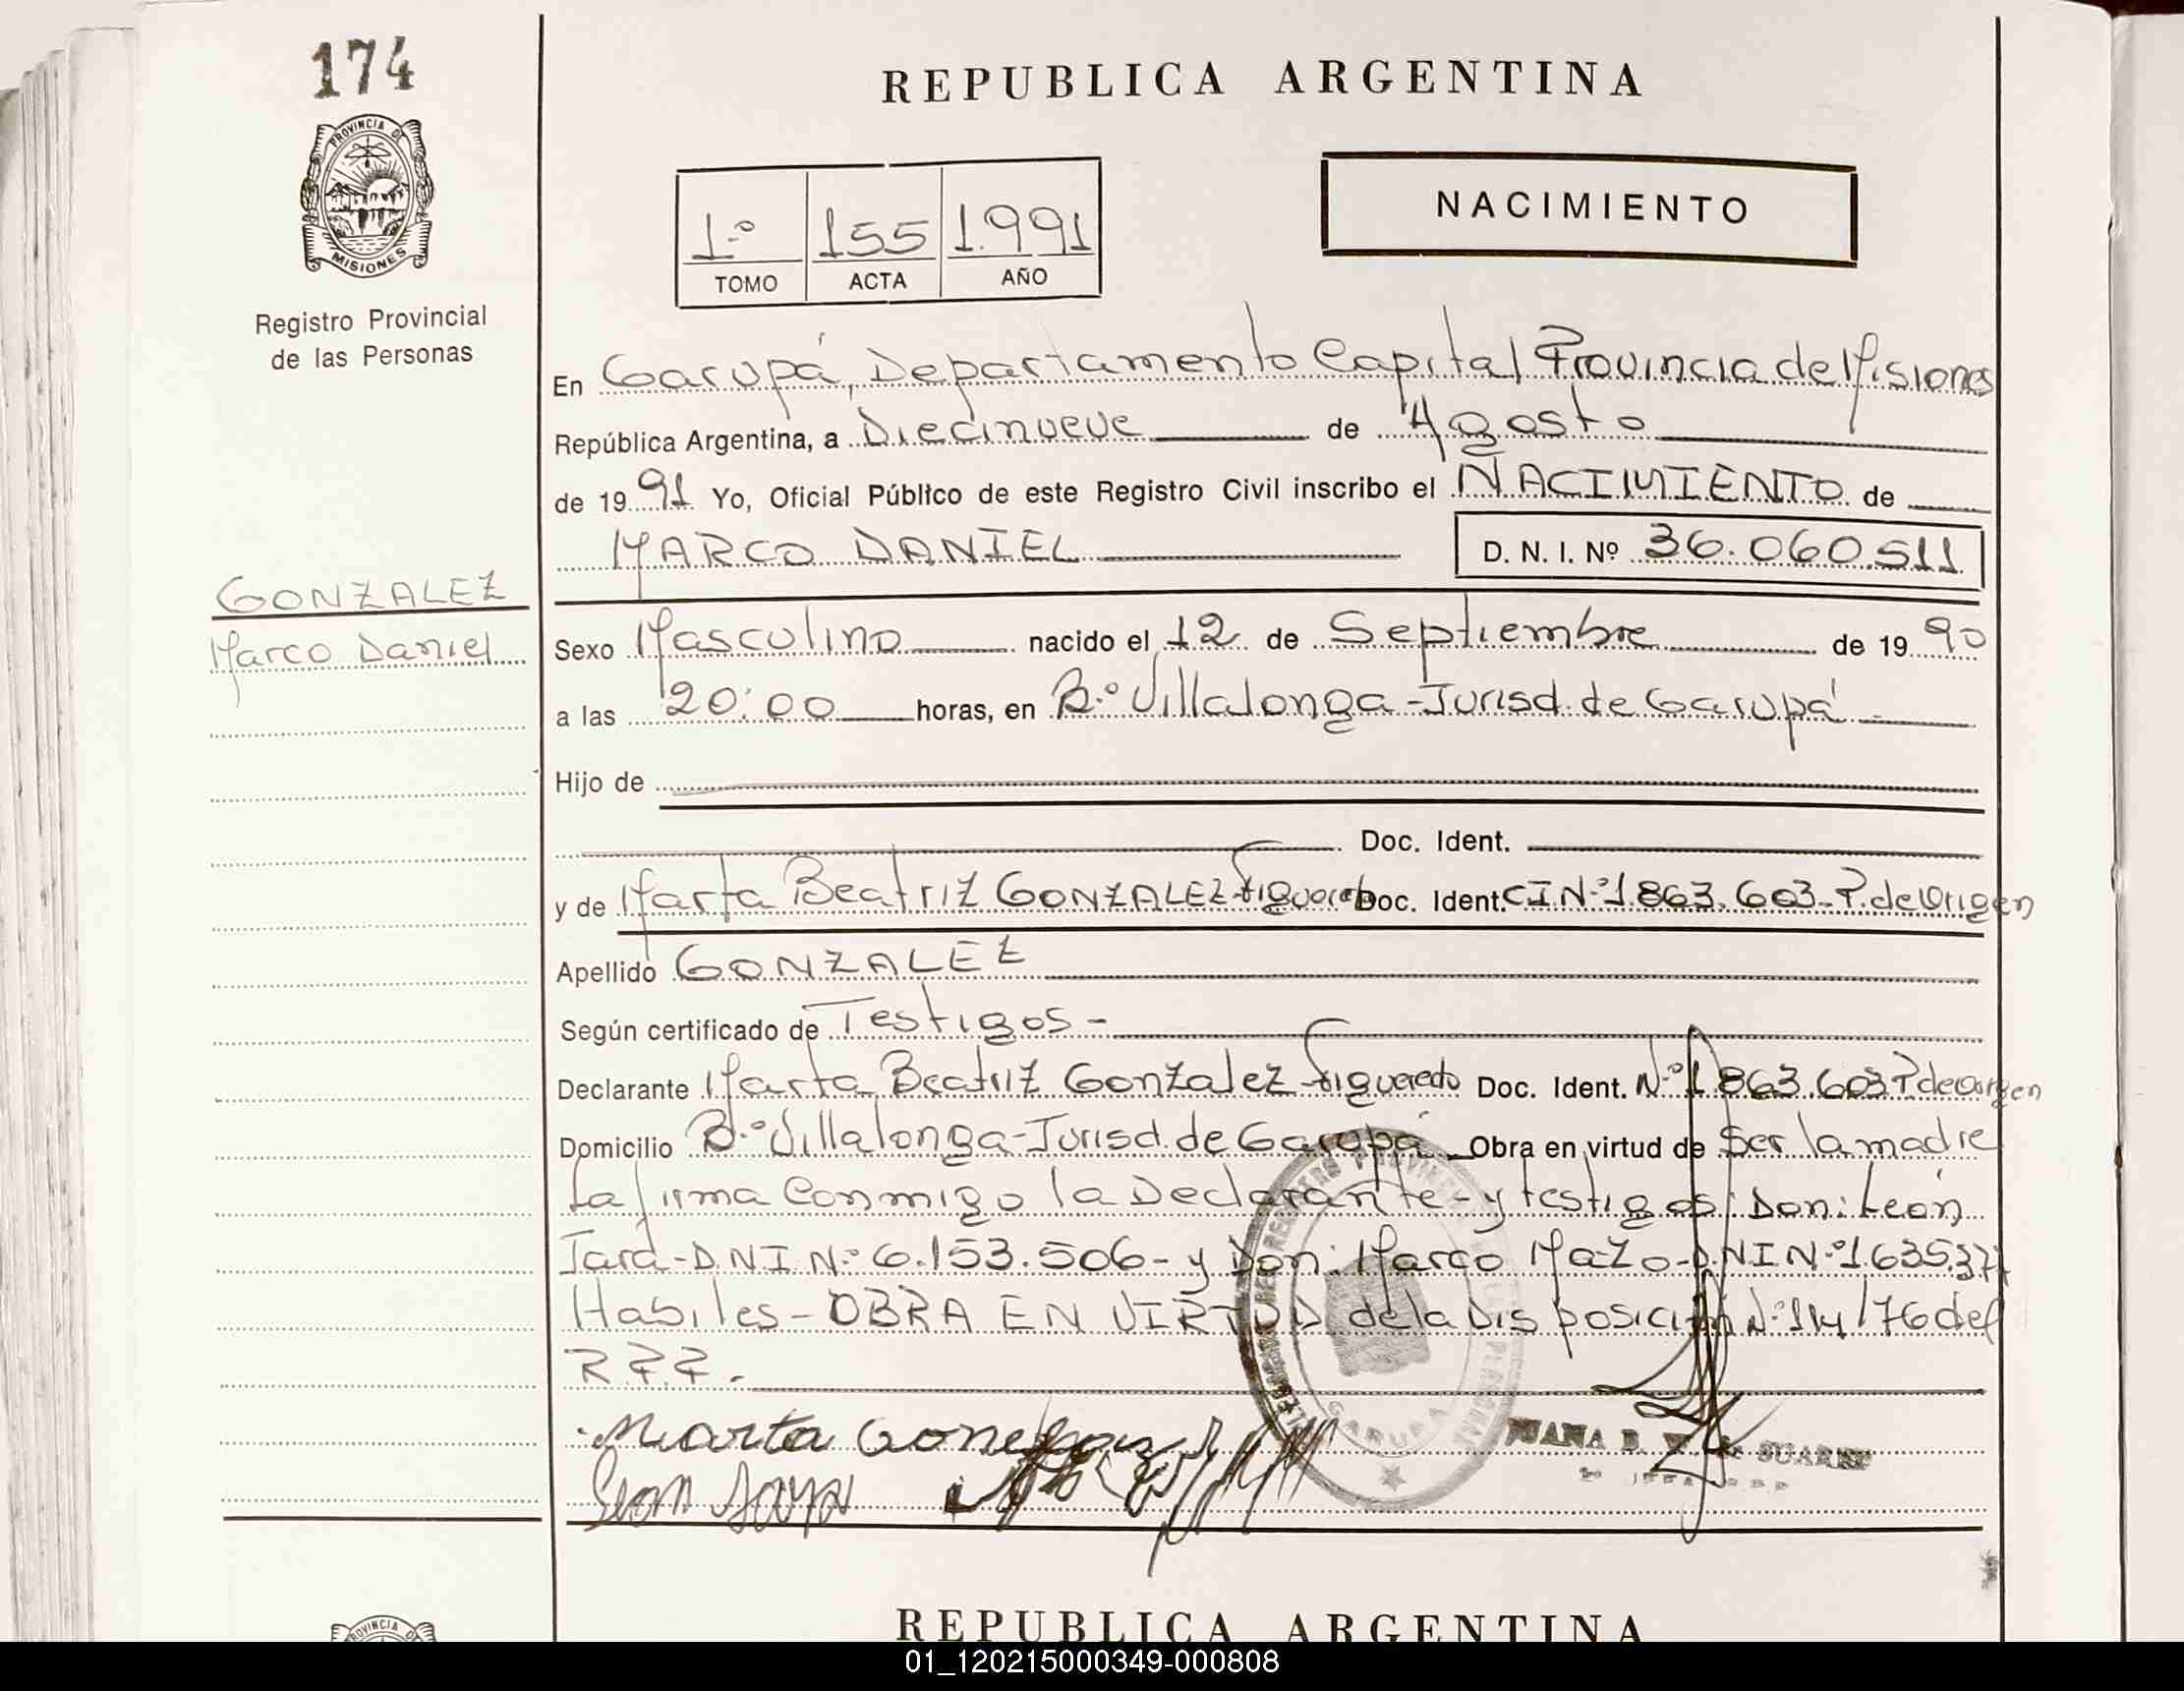 174
REPUBLICA ARGENTINA
PROVINCIA DE
MISIONES
Registro Provincial
de las Personas
1º 155 1.991
TOMO ACTA AÑO
NACIMIENTO
En Garupá, Departamento Capital Provincia de Misiones
República Argentina, a Diecinueve de Agosto
de 1991 Yo, Oficial Público de este Registro Civil inscribo el NACIMIENTO de
MARCO DANIEL D. N. I. Nº 36.060.511
GONZALEZ
Marco Daniel
Sexo Masculino nacido el 12 de Septiembre de 1990
a las 20:00 horas, en B.º Villalonga-Jurisd. de Garupá-
Hijo de
Doc. Ident.
y de Marta Beatriz GONZALEZ Figueredo Doc. Ident. CIN.º 1.863.603-P. de Origen
Apellido GONZALEZ
Según certificado de Testigos-
Declarante Marta Beatriz Gonzalez Figueredo Doc. Ident. N.º 1.863.603 P de Origen
Domicilio B.º Villalonga-Jurisd. de Garupá Obra en virtud de Ser la madre
La firma Conmigo la Declarante-y testigos: Don: León
Jara-D.N.I.N.º 6.153.506- y Don: Marco Mazo-D.N.I.N.º 1.635.37
Habiles-OBRA EN VIRTUD de la Disposición N.º 114/76 del
R.P.P.
Marta Gonzalez
Leon Jara
GARUPA
JUANA SUAREZ
REPUBLICA ARGENTINA
01_120215000349-000808